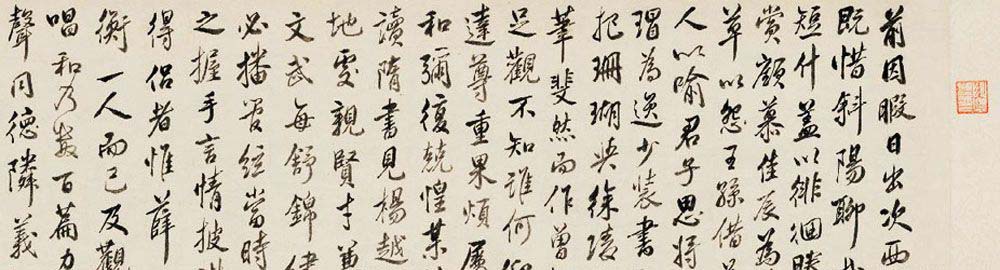 前因暇日出次西
既惜斜陽聊
短什蓋以徘徊勝
賞顧慕佳辰為
草以怨王孫借
人以喻君子思將
瑁為逆少裝書
把珊瑚與徐陵
筆斐然而作曽
足觀不知誰何
達尊重果煩屬
和彌復兢惶某
讀隋書見楊越
地處親賢才兼
文武每舒錦
必播管絃當時
之握手言情披
得侶者惟薛
衡一人而已及觀
唱和乃數百篇力
聲同德隣義